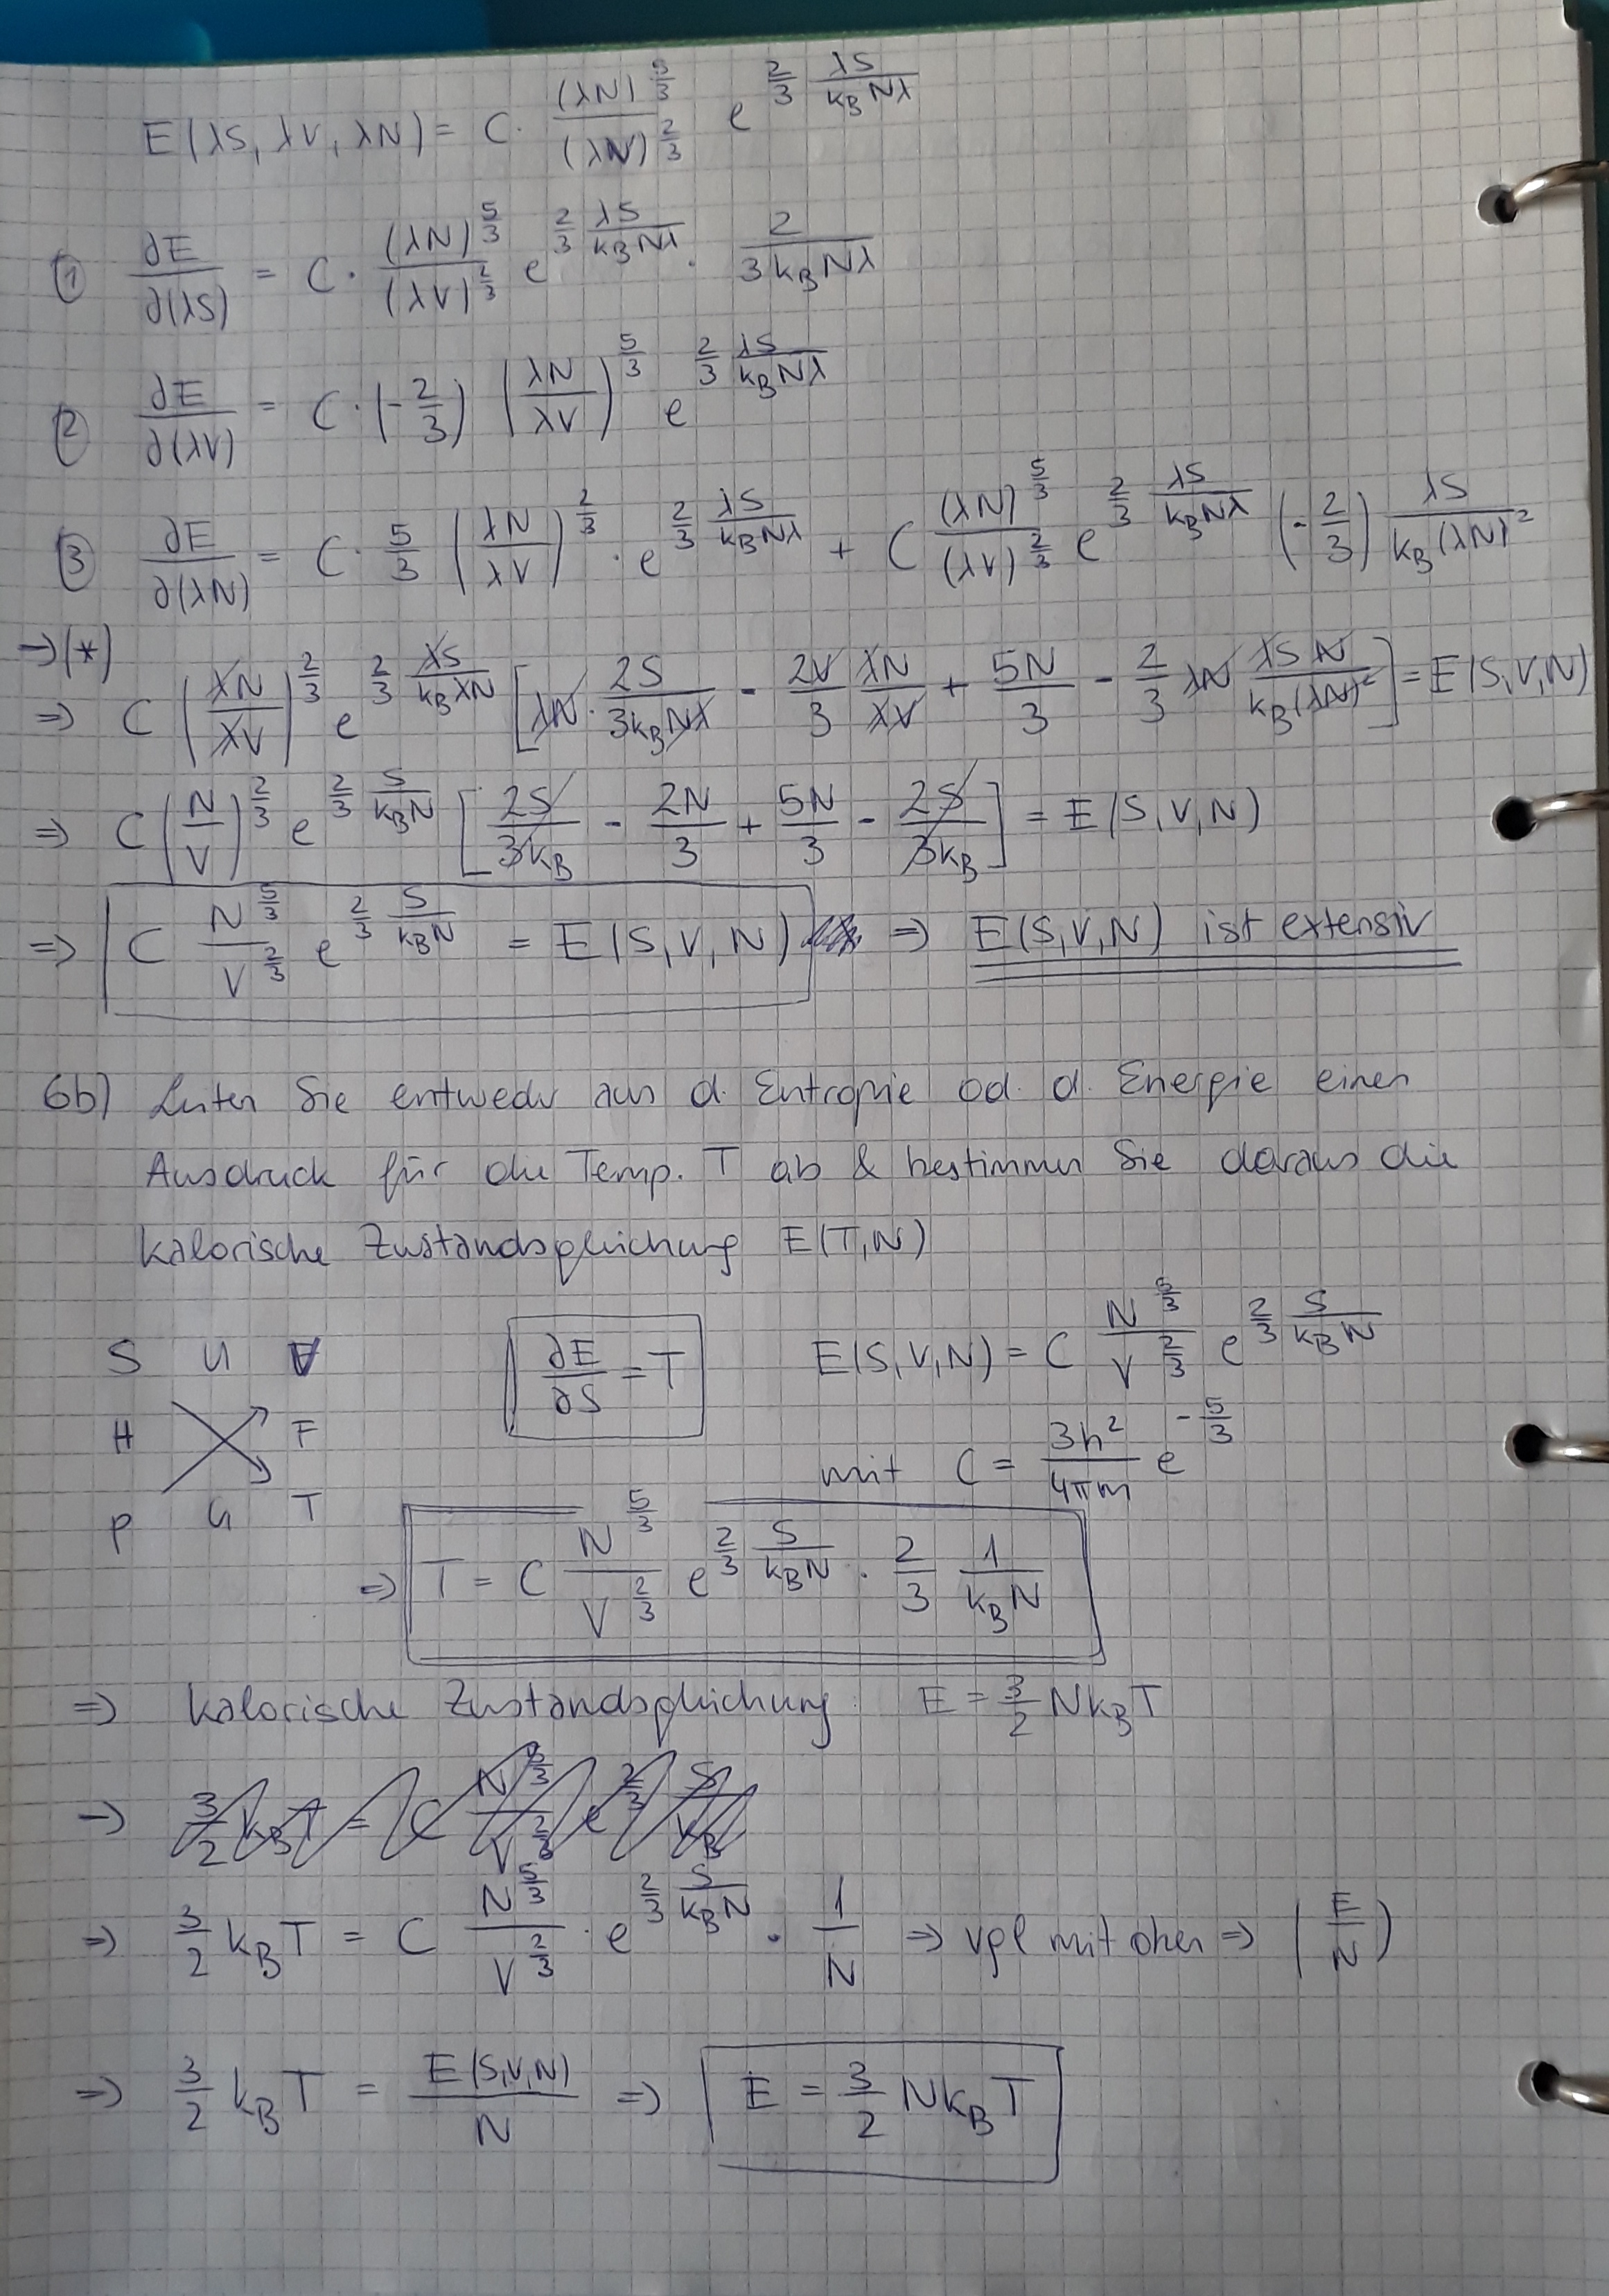 E(λS, λV, λN) = C · (λN)^{5/3} / (λN)^{2/3} e^{2/3 λS/(k_B Nλ)}
① ∂E/∂(λS) = C · (λN)^{5/3} / (λV)^{2/3} e^{2/3 λS/(k_B Nλ)} · 2/(3 k_B Nλ)
② ∂E/∂(λV) = C · (-2/3) (λN/λV)^{5/3} e^{2/3 λS/(k_B Nλ)}
③ ∂E/∂(λN) = C · 5/3 (λN/λV)^{2/3} · e^{2/3 λS/(k_B Nλ)} + C (λN)^{5/3} / (λV)^{2/3} e^{2/3 λS/(k_B Nλ)} (-2/3) λS/(k_B (λN)^2)
→ (*)
⇒ C (λN/λV)^{2/3} e^{2/3 λS/(k_B λN)} [λN · 2S/(3k_B Nλ) - 2V/3 λN/λV + 5N/3 - 2/3 λN λS N/(k_B (λN)^2)] = E(S,V,N)
⇒ C (N/V)^{2/3} e^{2/3 S/(k_B N)} [2S/(3k_B) - 2N/3 + 5N/3 - 2S/(3k_B)] = E(S,V,N)
⇒ C N^{5/3} / V^{2/3} e^{2/3 S/(k_B N)} = E(S,V,N) ⇒ E(S,V,N) ist extensiv
6b) Leiten Sie entweder aus d. Entropie od. d. Energie einen
Ausdruck für die Temp. T ab & bestimmen Sie daraus die
kalorische Zustandsgleichung E(T,N)
S U V
H F
P G T
∂E/∂S = T
E(S,V,N) = C N^{5/3} / V^{2/3} e^{2/3 S/(k_B N)}
mit C = 3h^2/(4πm) e^{-5/3}
⇒ T = C N^{5/3} / V^{2/3} e^{2/3 S/(k_B N)} · 2/3 1/(k_B N)
⇒ kalorische Zustandsgleichung: E = 3/2 N k_B T
→ 3/2 k_B T = C N^{5/3} / V^{2/3} e^{2/3 S/k_B}
⇒ 3/2 k_B T = C N^{5/3} / V^{2/3} · e^{2/3 S/(k_B N)} · 1/N ⇒ vgl mit oben ⇒ (E/N)
⇒ 3/2 k_B T = E(S,V,N)/N ⇒ E = 3/2 N k_B T